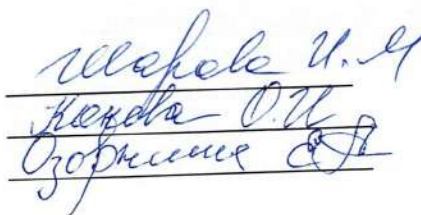 Шарова И. М
Канева О. И
Озорнина